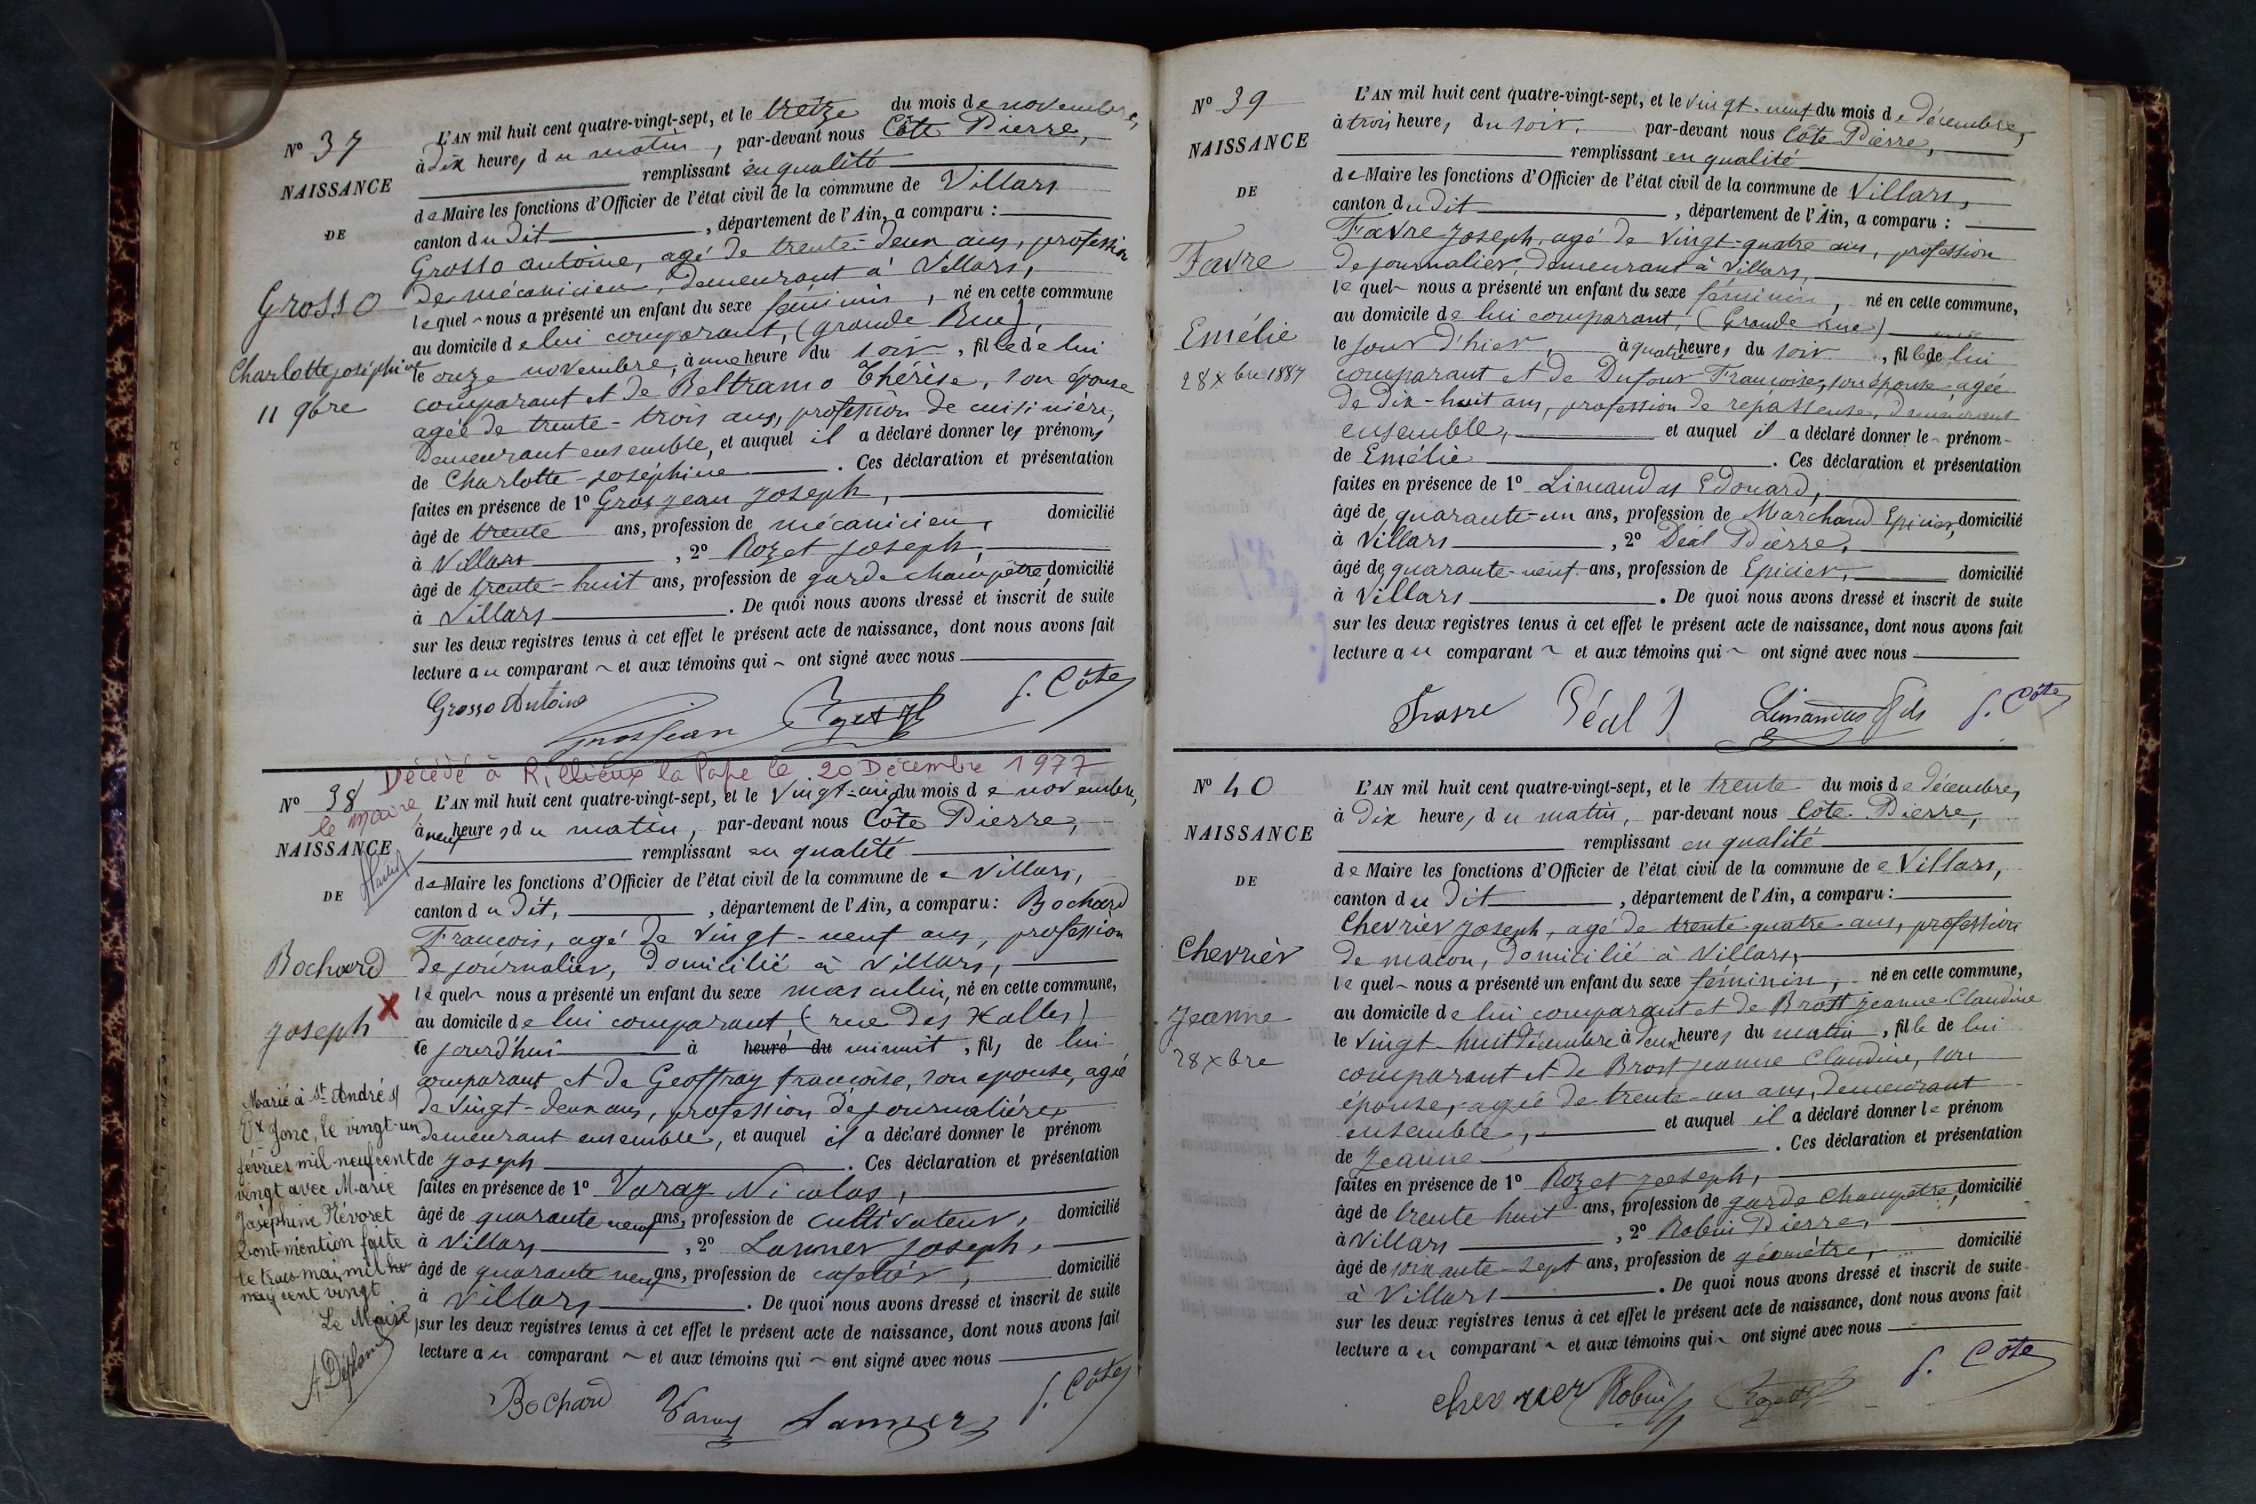 N° 37
NAISSANCE
DE
Grosso
Charlotte joséphine
11 9bre
L'AN mil huit cent quatre-vingt-sept, et le treize du mois de novembre,
à dix heures du matin, par-devant nous Côte Pierre,
remplissant en qualité
de Maire les fonctions d'Officier de l'état civil de la commune de Villars
canton du dit, département de l'Ain, a comparu :
Grosso antoine, agé de trente-deux ans, profession
de mécanicien, demeurant à Villars,
lequel nous a présenté un enfant du sexe féminin, né en cette commune
au domicile de lui comparant, (grande Rue),
le onze novembre, à une heure du soir, fille de lui
comparant et de Beltramo Thérèse, son épouse
agée de trente-trois ans, profession de cuisinière,
demeurant ensemble, et auquel il a déclaré donner les prénoms
de Charlotte-joséphine. Ces déclaration et présentation
faites en présence de 1° Grosjean joseph,
âgé de trente ans, profession de mécanicien, domicilié
à Villars, 2° Rozet joseph,
âgé de trente-huit ans, profession de garde champêtre, domicilié
à Villars. De quoi nous avons dressé et inscrit de suite
sur les deux registres tenus à cet effet le présent acte de naissance, dont nous avons fait
lecture au comparant et aux témoins qui ont signé avec nous
Grosso Antoine Grosjean Rozet P. Côte
Décédé à Rillieux la Pape le 20 Décembre 1977
le maire
N° 38
NAISSANCE
DE
Bochard
X
joseph
Marié à St André s/
Vx Jonc, le vingt-un
février mil-neuf cent
vingt avec Marie
Joséphine Névoret
Dont mention faite
le trois mai mil
neuf cent vingt
Le Maire
L'AN mil huit cent quatre-vingt-sept, et le Vingt-un du mois de novembre,
à neuf heures du matin, par-devant nous Côte Pierre,
remplissant en qualité
de Maire les fonctions d'Officier de l'état civil de la commune de Villars,
canton du dit, département de l'Ain, a comparu : Bochard
François, agé de Vingt-neuf ans, profession
de journalier, domicilié à Villars,
lequel nous a présenté un enfant du sexe masculin, né en cette commune,
au domicile de lui comparant, (rue des Halles)
le jourd'hui à heure du minuit, fils de lui
comparant et de Geoffray françoise, son épouse, agée
de Vingt-deux ans, profession de journalière,
demeurant ensemble, et auquel il a déclaré donner le prénom
de joseph. Ces déclaration et présentation
faites en présence de 1° Varay Nicolas,
âgé de quarante neuf ans, profession de cultivateur, domicilié
à Villars, 2° Lanner joseph,
âgé de quarante neuf ans, profession de cafetier, domicilié
à Villars. De quoi nous avons dressé et inscrit de suite
sur les deux registres tenus à cet effet le présent acte de naissance, dont nous avons fait
lecture au comparant et aux témoins qui ont signé avec nous
Bochard Varay Lanner P. Côte
N° 39
NAISSANCE
DE
Favre
Emélie
28 xbre 1887
L'AN mil huit cent quatre-vingt-sept, et le vingt-neuf du mois de décembre,
à trois heures du soir, par-devant nous Côte Pierre,
remplissant en qualité
de Maire les fonctions d'Officier de l'état civil de la commune de Villars,
canton du dit, département de l'Ain, a comparu :
Favre joseph, agé de vingt-quatre ans, profession
de journalier, demeurant à Villars,
lequel nous a présenté un enfant du sexe féminin, né en cette commune,
au domicile de lui comparant, (Grande rue)
le jour d'hier, à quatre heures du soir, fille de lui
comparant et de Dufour Françoise, son épouse, agée
de dix-huit ans, profession de repasseuse, demeurant
ensemble, et auquel il a déclaré donner le prénom
de Emélie. Ces déclaration et présentation
faites en présence de 1° Limandas Edouard,
âgé de quarante-un ans, profession de Marchand Epicier, domicilié
à Villars, 2° Déal Pierre,
âgé de quarante-neuf ans, profession de Epicier, domicilié
à Villars. De quoi nous avons dressé et inscrit de suite
sur les deux registres tenus à cet effet le présent acte de naissance, dont nous avons fait
lecture au comparant et aux témoins qui ont signé avec nous
Favre Déal P Limandas fils P. Côte
N° 40
NAISSANCE
DE
Chevrier
Jeanne
28 xbre
L'AN mil huit cent quatre-vingt-sept, et le trente du mois de décembre,
à dix heures du matin, par-devant nous Côte Pierre,
remplissant en qualité
de Maire les fonctions d'Officier de l'état civil de la commune de Villars,
canton du dit, département de l'Ain, a comparu :
Chevrier joseph, agé de trente quatre ans, profession
de macon, domicilié à Villars,
lequel nous a présenté un enfant du sexe féminin, né en cette commune,
au domicile de lui comparant et de Brost jeanne Claudine
le vingt-huit décembre à deux heures du matin, fille de lui
comparant et de Brost jeanne Claudine, son
épouse, agée de trente-un ans, demeurant
ensemble, et auquel il a déclaré donner le prénom
de Jeanne. Ces déclaration et présentation
faites en présence de 1° Rozet joseph,
âgé de trente huit ans, profession de garde champêtre, domicilié
à Villars, 2° Robin Pierre,
âgé de soixante-sept ans, profession de géomètre, domicilié
à Villars. De quoi nous avons dressé et inscrit de suite
sur les deux registres tenus à cet effet le présent acte de naissance, dont nous avons fait
lecture au comparant et aux témoins qui ont signé avec nous
chevrier Robin Rozet P. Côte